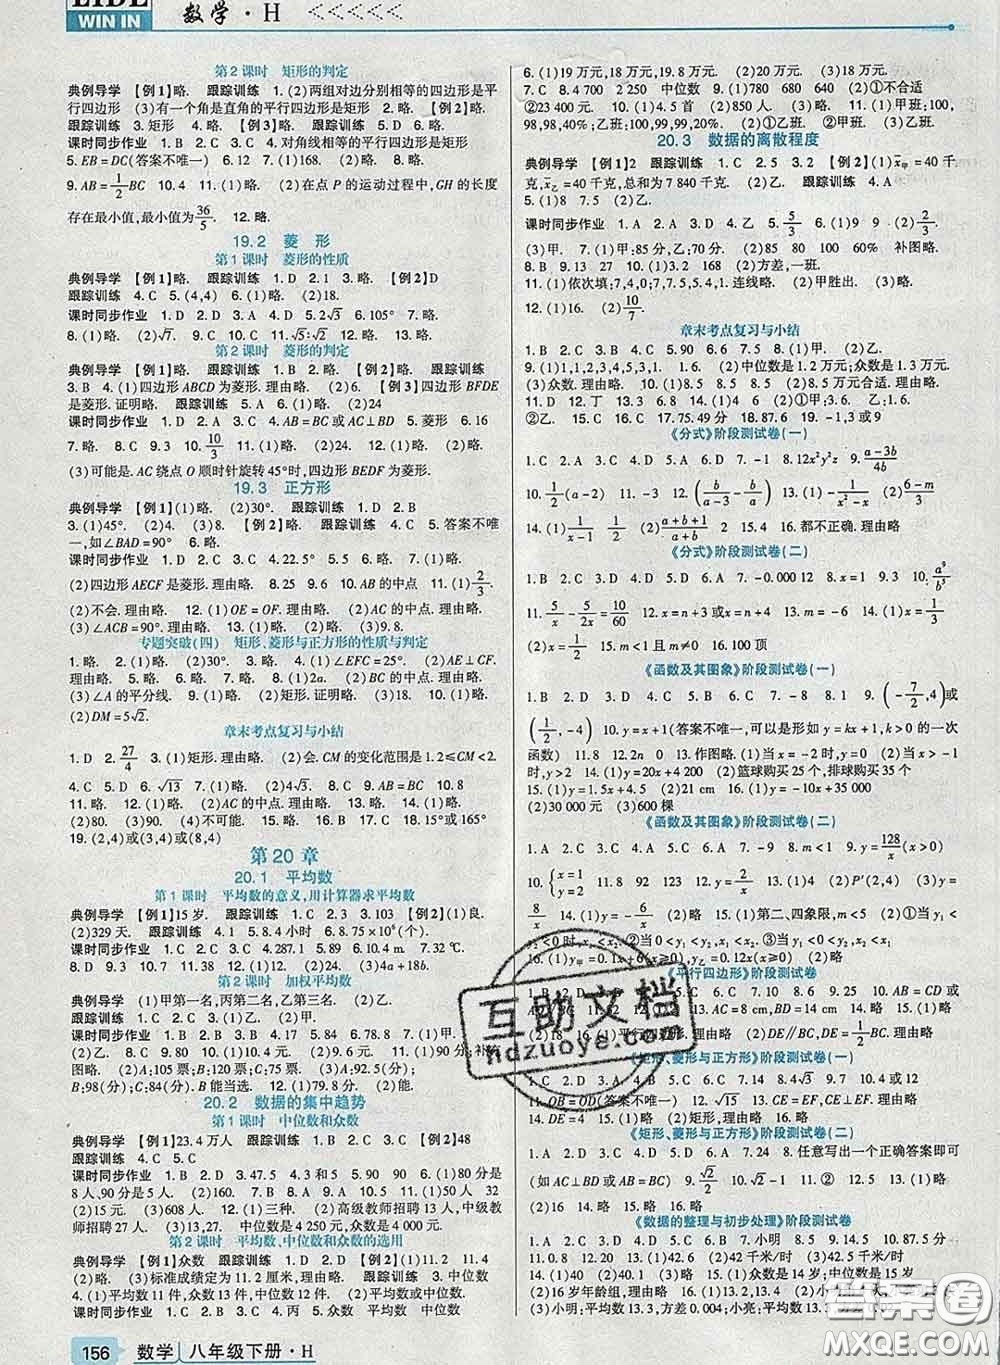 EIDE
WIN IN
数学·H
第2课时 矩形的判定
典例导学 【例1】略. 跟踪训练 1.略. 2.(1)略. (2)两组对边分别相等的四边形是平
行四边形 (3)有一个角是直角的平行四边形是矩形 【例2】略.
跟踪训练 3.矩形 4.略. 【例3】略. 跟踪训练 5.略.
课时同步作业 1.A 2.C 3.C 4.对角线相等的平行四边形是矩形
5.EB=DC(答案不唯一) 6.12 7.(1)略. (2)略. 8.B
9.AB=1/2BC 10.4 11.(1)略. (2)在点P的运动过程中,GH的长度
存在最小值,最小值为36/5 12.略.
19.2 菱形
第1课时 菱形的性质
典例导学 【例1】略. 跟踪训练 1.D 2.1 3.略. 【例2】D
跟踪训练 4.C 5.(4,4) 6.(1)略. (2)18.
课时同步作业 1.B 2.D 3.A 4.B 5.D 6.105° 7.略.
8.(1)略. (2)√7. 9.C 10.C 11.√5:√2 12.略. 13.略.
第2课时 菱形的判定
典例导学 【例1】略. 跟踪训练 1.略. 2.略. 【例2】略. 跟踪训练
3.B 4.(1)四边形ABCD为菱形.理由略. (2)6. 【例3】四边形BFDE
是菱形.证明略. 跟踪训练 5.A 6.(1)略. (2)24
课时同步作业 1.D 2.A 3.C 4.AB=BC或AC⊥BD 5.菱形 6.16
7.略. 8.C 9.3 10.10/3 11.(1)略. (2)略. 12.(1)略. (2)略.
(3)可能是.AC绕点O顺时针旋转45°时,四边形BEDF为菱形.
19.3 正方形
典例导学 【例1】(1)略. (2)30°. 跟踪训练 1.B 2.C
3.(1)45°. (2)略. (3)8. 【例2】略. 跟踪训练 4.B 5.答案不唯
一,如∠BAD=90° 6.略.
课时同步作业 1.D 2.C 3.C 4.22.5° 5.略. 6.略. 7.(1)略.
(2)四边形AECF是菱形.理由略. 8.25 9.6 10.AB的中点 11.(1)2/3.
(2)不会.理由略. 12.(1)OE=OF.理由略. (2)AC的中点.理由略.
(3)∠ACB=90°.理由略.
专题突破(四) 矩形、菱形与正方形的性质与判定
1.略. 2.(1)略. (2)30°. 3.略. 4.(1)∠EFC=25°. (2)AE⊥CF.
理由略. 5.略. 6.略. 7.略. 8.(1)2a. (2)BC的中点.理由略.
(3)∠A的平分线. 9.(1)略. (2)矩形.证明略. (3)18. 10.(1)略.
(2)DM=5√2.
章末考点复习与小结
1.D 2.27/4 3.(1)矩形.理由略. (2)会.CM的变化范围是1.2≤CM<2.
4.C 5.156 6.√13 7.(1)略. (2)略. 8.C 9.AB=BC 10.B
11.略. 12.略. 13.(1)略. (2)AC的中点.理由略. 14.(1)略.
(2)80. (3)90. (4)不可能. 15.略. 16.略. 17.B 18.15°或165°
19.(2,4)或(3,4)或(8,4)
第20章
20.1 平均数
第1课时 平均数的意义,用计算器求平均数
典例导学 【例1】15岁. 跟踪训练 1.C 2.3 3.103 【例2】(1)良.
(2)329天. 跟踪训练 4.D 5.8.4小时 6.8.75×10⁶(个).
课时同步作业 1.C 2.C 3.C 4.287.1 5.89 6.10.4 m. 7.32 ℃.
8.D 9.3 10.7 11.38 12.13 13.(3)4 14.a+18b.
第2课时 加权平均数
典例导学 (1)甲第一名,丙第二名,乙第三名. (2)录取甲.
跟踪训练 (1)甲. (2)甲.
课时同步作业 1.C 2.D 3.B 4.5 5.84 6.78.8 7.(1)甲.
(2)乙. 8.C 9.80 10.(1)乙. (2)9.6元. 11.(1)
图略. (2)A:90分;B:120分;C:75分. (3)A:95(分);
B;98(分);C;84(分). B能当选. 12.(1)79.8分. (2)
20.2 数据的集中趋势
第1课时 中位数和众数
典例导学 【例1】23.4万人 跟踪训练 1.B 2.C 3.C 【例2】48
跟踪训练 4.C 5.C
课时同步作业 1.B 2.D 3.47.5 4.3和5 5.(1)80分是
8人,90分是5人. (2)160. 6.C 7.C 8.A 9.C 10.(1)50人 32
(2)15元 15元 (3)608人. 12.(1)三种. (2)高级教师招聘13人,中级教
师招聘27人. (3)13人. 中位数是4 250元,众数是4 000元.
第2课时 平均数、中位数和众数的选用
典例导学 【例1】众数 跟踪训练 1.B 2.B 【例2】(1)11.2 11.4
(2)标准成绩定为11.2厘米,理由略. 跟踪训练 3.中位数
4.(1)平均数13件,众数12件,中位数12件. (2)平均数或中位数.
课时同步作业 1.D 2.D 3.C 4.丙 5.众数 中位数
6.(1)19万元,18万元,19.8万元. (2)20万元. (3)18万元.
7.C 8.4 700 2 250 中位数 9.(1)780 680 640 (2)①不合适
②23 400元. 10.(1)4.5 (2)850人. (3)略. 11.(1)甲班:100,
98,98,40%;乙班:100,99,99,20%. (2)①乙班. ②甲班.
20.3 数据的离散程度
典例导学 【例1】2 跟踪训练 1.C 2.5 3.2 【例2】(1)x̄甲=40千
克,x̄乙=40千克,总和为7 840千克. (2)乙. 跟踪训练 4.A
5.(1)8 7 (2)乙.
课时同步作业 1.A 2.A 3.乙 4.乙 5.5/3 6.(1)9 9 (2)2/3.
(3)甲. 7.(1)甲:85分,乙:70分. (2)85分 100分. 补图略.
8.B 9.13 27 10.(1)3.2 168 (2)方差,一班.
11.(1)依次填:7,4,0,7;7.5,4.1.连线略. (2)甲胜出. (3)略.
12.(1)16. (2)10/7.
章末考点复习与小结
1.B 2.B 3.C 4.C 5.90 6.6 7.5 8.(1)甲 (2)乙.
9.(1)1,1,2,3,4,5,3,1. 1.6. (2)中位数是1.2万元;众数是1.3万元.
(3)众数.理由略. 10.(1)8.5 8.5 8.5 (2)8.5万元合适.理由略.
11.D 12.丁 13.6.8 14.(1)4 6 (2)①甲,乙. ②乙.
②乙. 15.C 16.C 17.75.49分 18.87.6 19.-1,3或9
《分式》阶段测试卷(一)
1.C 2.A 3.D 4.B 5.D 6.A 7.-1 8.12x²y²z 9.(a-3b)/4b
10.1/2(a-2) 11.6 12.(b/(a-3) -b/(a-b)) 13.(1)-1/(x²-x) (2)(6-m)/3
14.(1)1/(x-1) 1/2 (2)(a+b+1)/(a+b) 2 15.4 16.都不正确.理由略
《分式》阶段测试卷(二)
1.B 2.D 3.C 4.C 5.B 6.A 7.-0.000 12 8.x=1 9.3 10.a³/b³
11.5/x-5/2x=10/60 12.x=n+3或x=n+4 13.略 14.(1)x=1/3
(2)x=-1/2 15.m<1且m≠0 16.100顶
《函数及其图象》阶段测试卷(一)
1.B 2.D 3.D 4.C 5.B 6.C 7.-8 8.1 9.(-7/2,4)或
(1/2,-4) 10.y=x+1(答案不唯一,可以是形如y=kx+1,k>0的一次
函数) 11.8 12.2n 13.作图略.(1)当x=-2时,y=0 (2)当x>-1
时,y>2 14.(1)y=20x+4 200 (2)篮球购买25个,排球购买35个
15.(1)y=1.5x+4.5 (2)21 cm 16.(1)y=-10x+35 000
(2)30 000元 (3)600棵
《函数及其图象》阶段测试卷(二)
1.A 2.D 3.D 4.A 5.A 6.B 7.-2 8.m<1/2 9.y=128/x(x>0)
10.{x=1 y=2 11.7 12.2 13.(1)y=2/x (2)P'(2,4) (3)y=
8/x 14.(1)y=-6/x (2)略 15.(1)第二、四象限,m<5 (2)①当y₁<
y₂<0时,x₁<x₂.②当0<y₁<y₂时,x₁<x₂.③当y₁<0<y₂时,x₁>x₂
16.(1)y甲=0.1x+6(x≥0),y乙=0.12x(x≥0) (2)略
《平行四边形》阶段测试卷
1.B 2.C 3.D 4.A 5.C 6.C 7.10 8.5 9.20 10.AB=CD或
11 12.10 13.AC=8 cm,BD=14 cm 14.略
15.略 16.(1)平行四边形.理由略 (2)DE∥BC,DE=1/2BC.理由略
《矩形、菱形与正方形》阶段测试卷(一)
1.D 2.C 3.B 4.C 5.C 6.B 7.22.5 8.5/2√3 9.略 10.6或12
11.OB=OD(答案不唯一) 12.√15 13.CE=EF,CE⊥EF.理由略
14.略 15.略 16.(1)略 (2)矩形,理由略
《矩形、菱形与正方形》阶段测试卷(二)
1.A 2.D 3.C 4.C 5.B 6.A 7.24 8.任意写出一个正确答案即可
(如AC⊥BD或AB=BC) 9.√2/2 10.√2-1 11.略 12.略
(2)16 14.略 15.略 16.略
《数据的整理与初步处理》阶段测试卷
1.C 2.A 3.D 4.B 5.D 6.B 7.小明 8.5 9.14.5 10.87.5分
11.0.8 12.9 13.(1)42.6 (2)42千米/时 (3)能
14.(1)略 (2)略 15.(1)众数是14岁;中位数是15岁
(2)16岁年龄组,理由略 16.(1)13.2 13.4
(3)小明:平均数13.3,方差0.004;小亮:平均数13.3
互助文档
hdzuoye.com
答案圈
MXQE.COM
156 数学 八年级下册·H